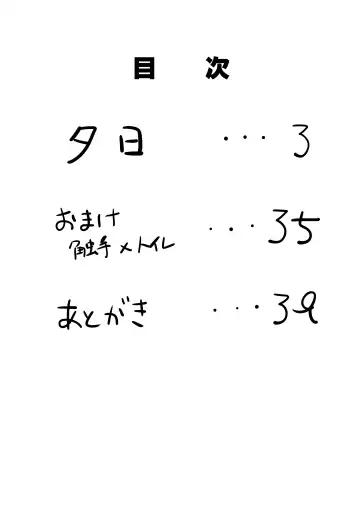 目 次
夕日 ・・・ 3
おまけ ・・・ 35
触手×トイレ
あとがき ・・・ 39